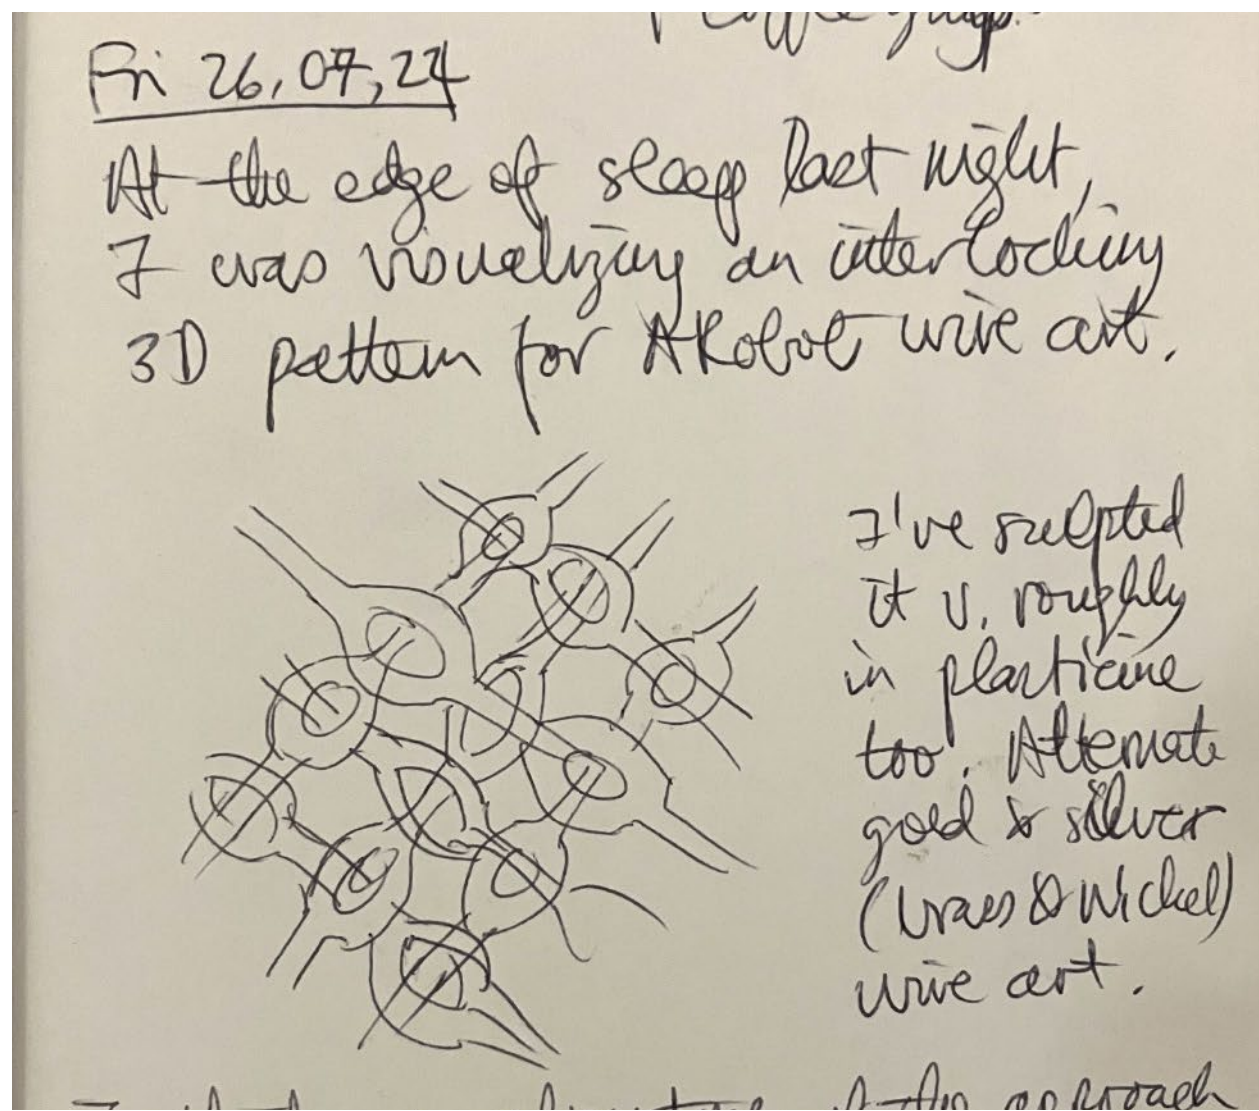 Fri 26,07,24
At the edge of sleep last night,
I was visualizing an interlocking
3D pattern for ARobot wire art.
I've sculpted
it v. roughly
in plasticine
too. Alternate
gold & silver
(brass & nickel)
wire art.
of the approach